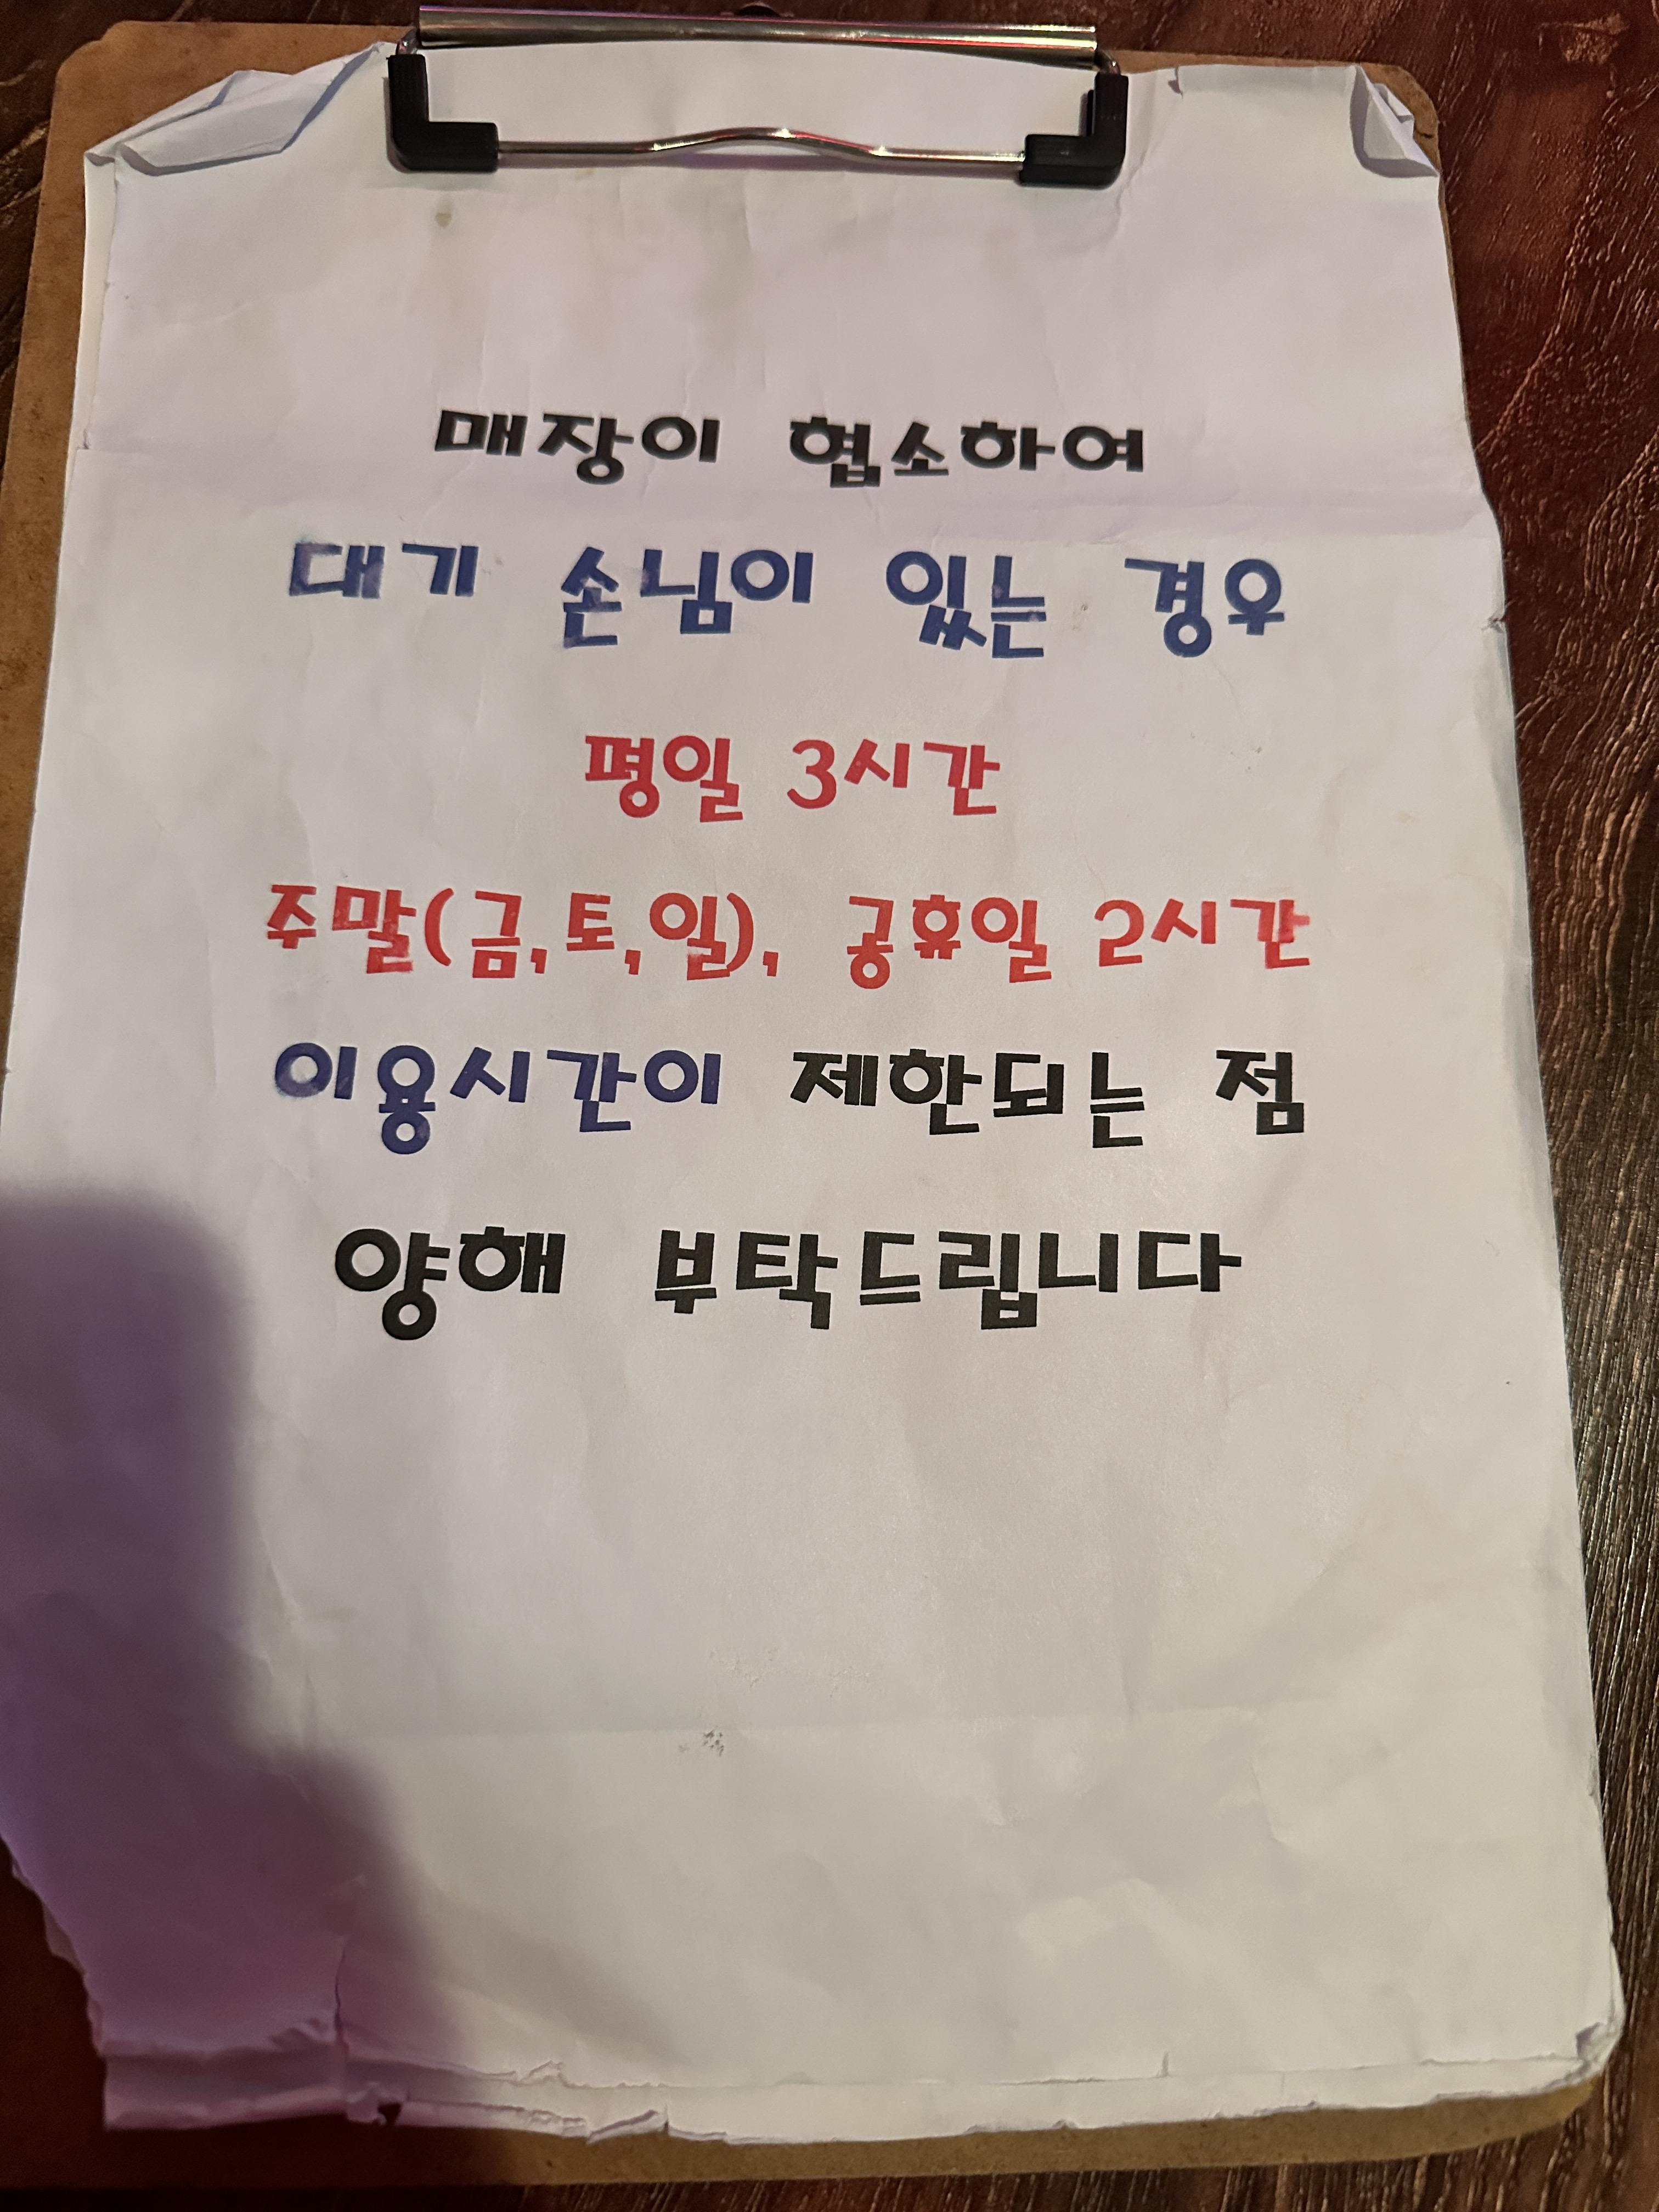 매장이 협소하여
대기 손님이 있는 경우
평일 3시간
주말(금,토,일), 공휴일 2시간
이용시간이 제한되는 점
양해 부탁드립니다